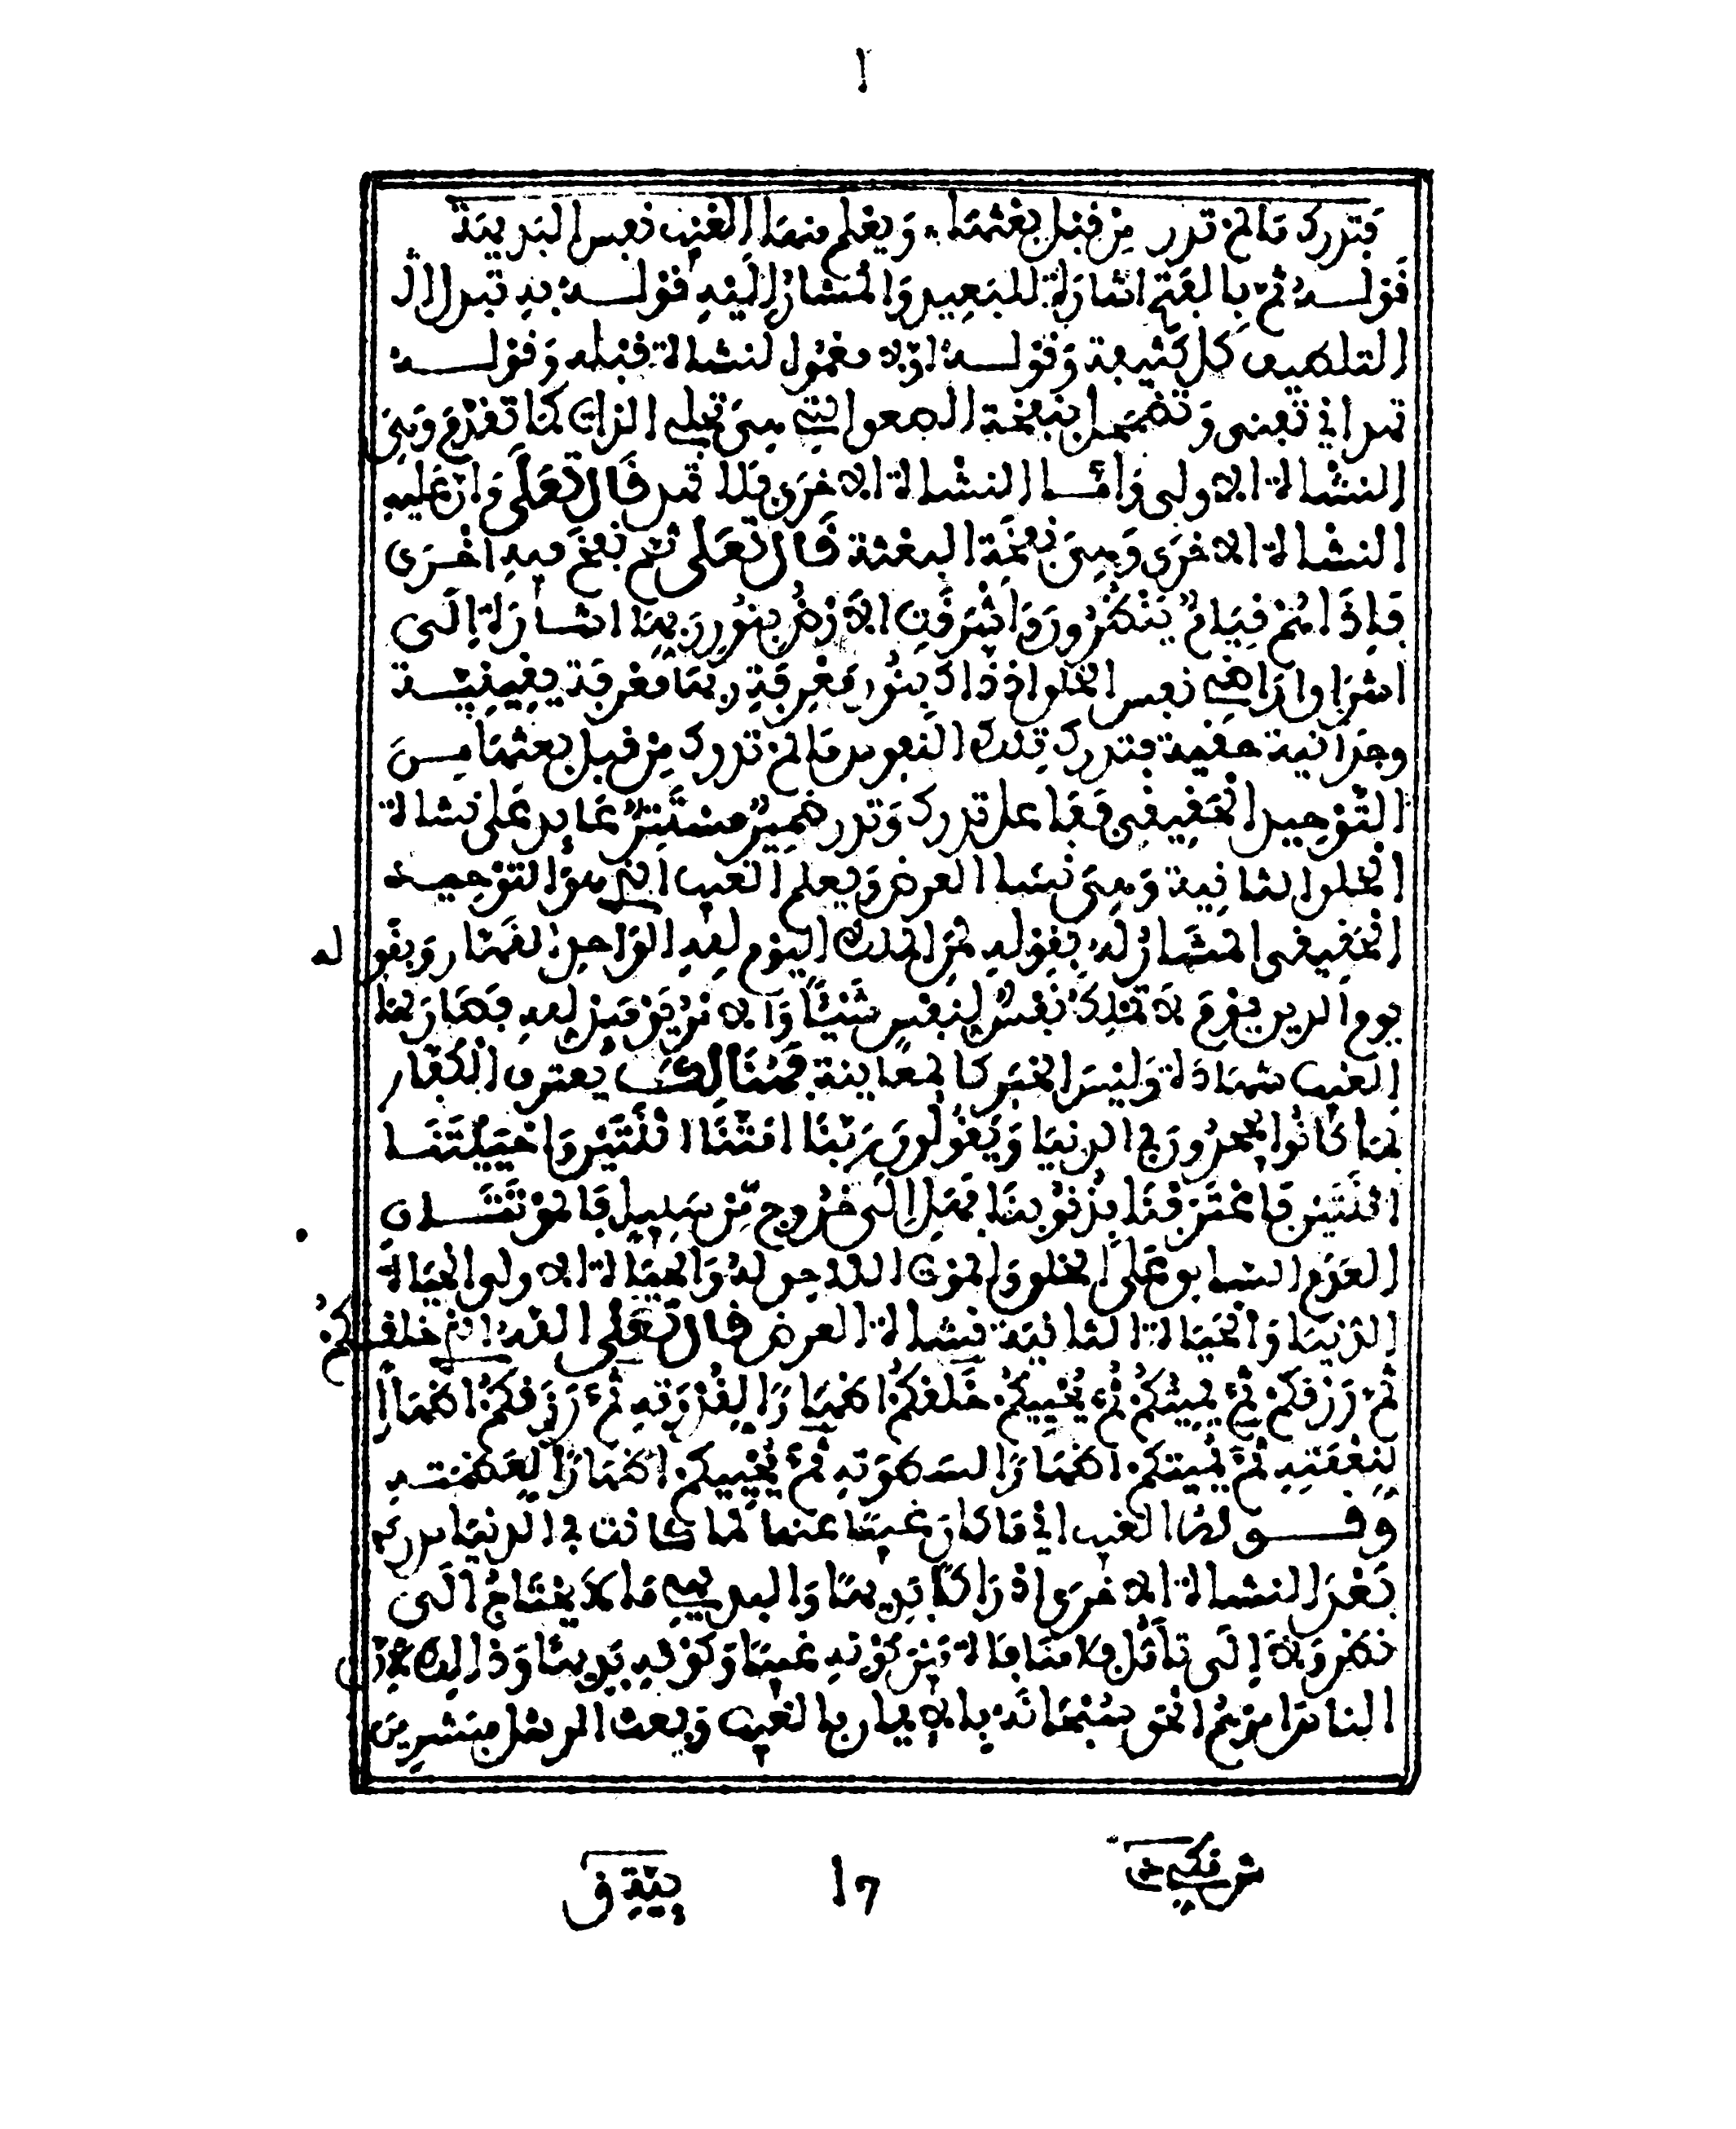 ا
فتدرك ما لم تدر من قبل بعثها ويعلم منها الغيب نفس البديهة
قوله ثم بالفتح إشارة للبعيد والمشار إليه قوله به تبدل ال
التلطيف كل كثيفة وقوله أولا معمول لنشأة قبله وقوله
تمد أي تفنى وتضمحل بنفخة الصعق التي هي تجلي الذات كما تقدم وهي
النشأة الأولى وأما النشأة الأخرى فلا تمد قال تعلى وان عليه
النشأة الاخرى وهي نفخة البعثة قال تعلى ثم نفخ فيه أخرى
فإذا هم قيام ينظرون وأشرقت الأرض بنور ربها إشارة إلى
إشراق أراضي نفس الخلق إذ ذاك بنور معرفة ربها معرفة يقينية
وجدانية حقية فتدرك تلك النفوس ما لم تدرك من قبل بعثها من
التوحيد الحقيقي ففاعل تدرك وتدر ضمير مستتر عايد على نشأة
الخلق الثانية وهي نشأ العرض ويعلم الغيب الذي هو التوحيد
الحقيقي المشار له بقوله لمن الملك اليوم لله الواحد القهار وبقوله
يوم الدين يوم لا تملك نفس لنفس شيئا والامر يومئذ لله فصار هذا
الغيب شهادة وليس الخبر كالمعاينة فهنالك يعترف الكفار
بما كانوا يجحدون في الدنيا ويقولون ربنا أمتنا اثنتين وأحييتنا
اثنتين فاعترفنا بذنوبنا فهل إلى خروج من سبيل فالموتتان
العدم السابق على الخلق والموت اللاحق له والحياة الاولى الحياة
الدنيا والحياة الثانية نشأة العرض قال تعلى الله الذي خلقكم
ثم رزقكم ثم يميتكم ثم يحييكم خلقكم اظهارا لقدرته ثم رزقكم اظهارا
لنعمته ثم يميتكم اظهارا لسطوته ثم يحييكم اظهارا لعظمته
وقوله الغيب اي ما كان غيبا عنها لما كانت في الدنيا تدركه
بعد النشأة الاخرى إدراكا بديهيا والبديهي ما لا يحتاج الى
نظر ولا إلى تأمل فلا منافاة بين كونه غيبا وكونه بديهيا وذالك لان
الناس أمرهم الحق سبحانه بالإيمان بالغيب وبعث الرسل مبشرين
بيّة ق
١٦